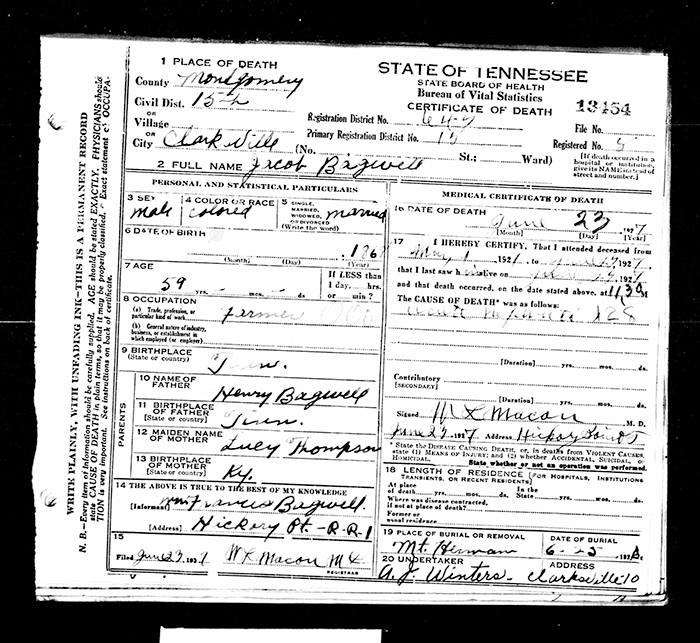 WRITE PLAINLY, WITH UNFADING INK—THIS IS A PERMANENT RECORD
N. B.—Every item of information should be carefully supplied. AGE should be stated EXACTLY. PHYSICIANS should
state CAUSE OF DEATH in plain terms, so that it may be properly classified. Exact statement of OCCUPA-
TION is very important. See instructions on back of certificate.
1 PLACE OF DEATH
County Montgomery
Civil Dist. 15-2
OR
Village
OR
City Clarksville (No. St.; Ward)
STATE OF TENNESSEE
STATE BOARD OF HEALTH
Bureau of Vital Statistics
CERTIFICATE OF DEATH
Registration District No.
Primary Registration District No.
13454
File No.
Registered No.
[If death occurred in a
hospital or institution,
give its NAME instead of
street and number.]
2 FULL NAME Jacob Bagwell
PERSONAL AND STATISTICAL PARTICULARS
3 SEX male
4 COLOR OR RACE colored
5 SINGLE, MARRIED, WIDOWED, OR DIVORCED (Write the word) married
6 DATE OF BIRTH
(Month) (Day) (Year)
7 AGE
59 yrs. mos. ds.
If LESS than
1 day, hrs.
or min?
8 OCCUPATION
(a) Trade, profession, or
particular kind of work Farmer
(b) General nature of industry,
business, or establishment in
which employed (or employer)
9 BIRTHPLACE
(State or country) Tenn.
PARENTS
10 NAME OF
FATHER Henry Bagwell
11 BIRTHPLACE
OF FATHER
[State or country] Tenn.
12 MAIDEN NAME
OF MOTHER Lucy Thompson
13 BIRTHPLACE
OF MOTHER
(State or country) Ky.
14 THE ABOVE IS TRUE TO THE BEST OF MY KNOWLEDGE
[Informant] Francis Bagwell
[Address] Hickory Pt. - R-R-1
15
Filed June 23, 1927 W L Macon
REGISTRAR
MEDICAL CERTIFICATE OF DEATH
16 DATE OF DEATH
June 23 1927
[Month] [Day] [Year]
17 I HEREBY CERTIFY, That I attended deceased from
May 1 1927, to 1927,
that I last saw h alive on 1927
and that death occurred, on the date stated above, at M
The CAUSE OF DEATH* was as follows:
[Duration] yrs. mos. ds.
Contributory
[SECONDARY]
[Duration] yrs. mos. ds.
Signed W L Macon M. D.
June 23 1927 Address Hickory Point
* State the DISEASE CAUSING DEATH, or, in deaths from VIOLENT CAUSES,
state (1) MEANS OF INJURY; and (2) whether ACCIDENTAL, SUICIDAL, or
HOMICIDAL. State whether or not an operation was performed.
18 LENGTH OF RESIDENCE (FOR HOSPITALS, INSTITUTIONS
TRANSIENTS, OR RECENT RESIDENTS)
At place In the
of death yrs. mos. ds. State yrs. mos. ds.
Where was disease contracted,
if not at place of death?
Former or
usual residence
19 PLACE OF BURIAL OR REMOVAL
Mt. Herman
DATE OF BURIAL
6-25-192
20 UNDERTAKER
A. J. Winters
ADDRESS
Clarksville